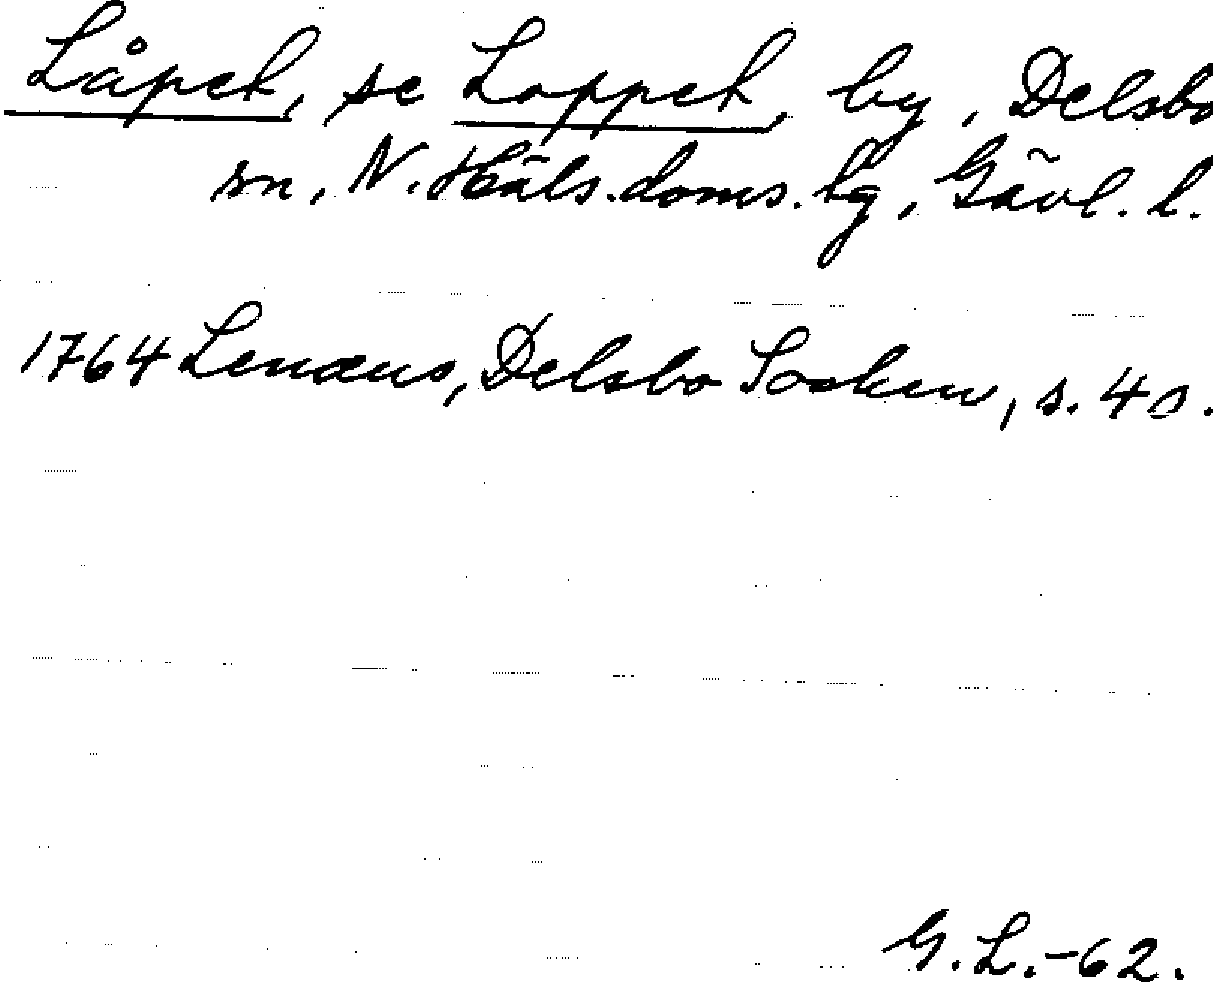 Låpet, se Loppet, by, Delsbo
sn, N. Häls.doms.hg, Gävl. l.
1764 Lenæus, Delsbo Socken, s. 40.
G.L.-62.